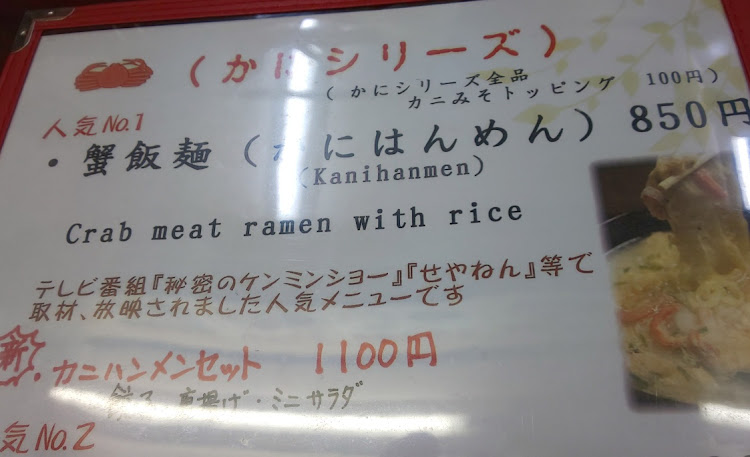 (かにシリーズ)
(かにシリーズ全品
カニみそトッピング 100円)
人気No.1
・蟹飯麺(かにはんめん) 850円
(Kanihanmen)
Crab meat ramen with rice
テレビ番組『秘密のケンミンショー』『せやねん』等で
取材、放映されました人気メニューです
新・カニハンメンセット 1100円
唐揚げ・ミニサラダ
気No.2